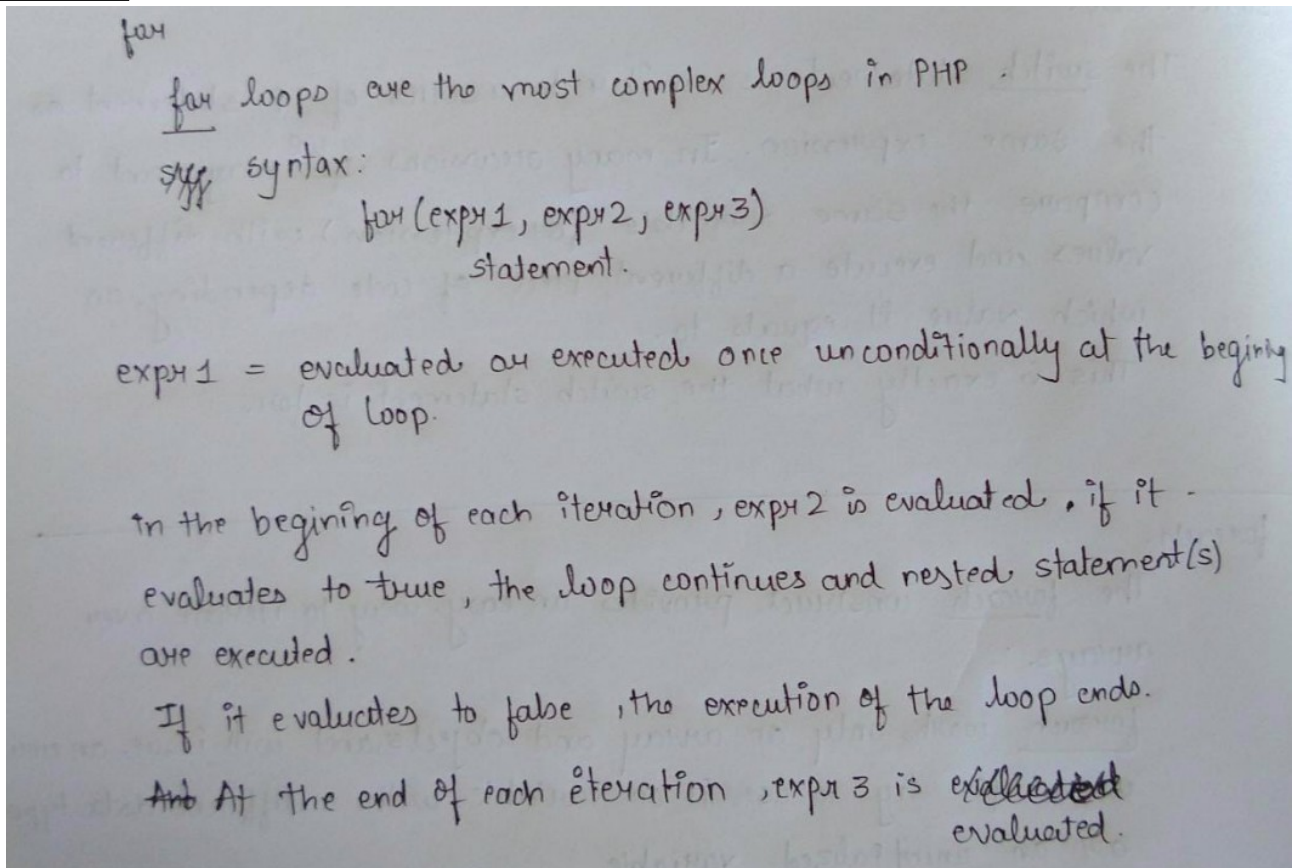 for
for loops are the most complex loops in PHP.
syntax:
for (expr1, expr2, expr3)
statement.
expr1 = evaluated or executed once unconditionally at the begining
of loop.
in the begining of each iteration, expr2 is evaluated, if it
evaluates to true, the loop continues and nested statement(s)
are executed.
If it evaluates to false, the execution of the loop ends.
At the end of each iteration, expr 3 is
evaluated.